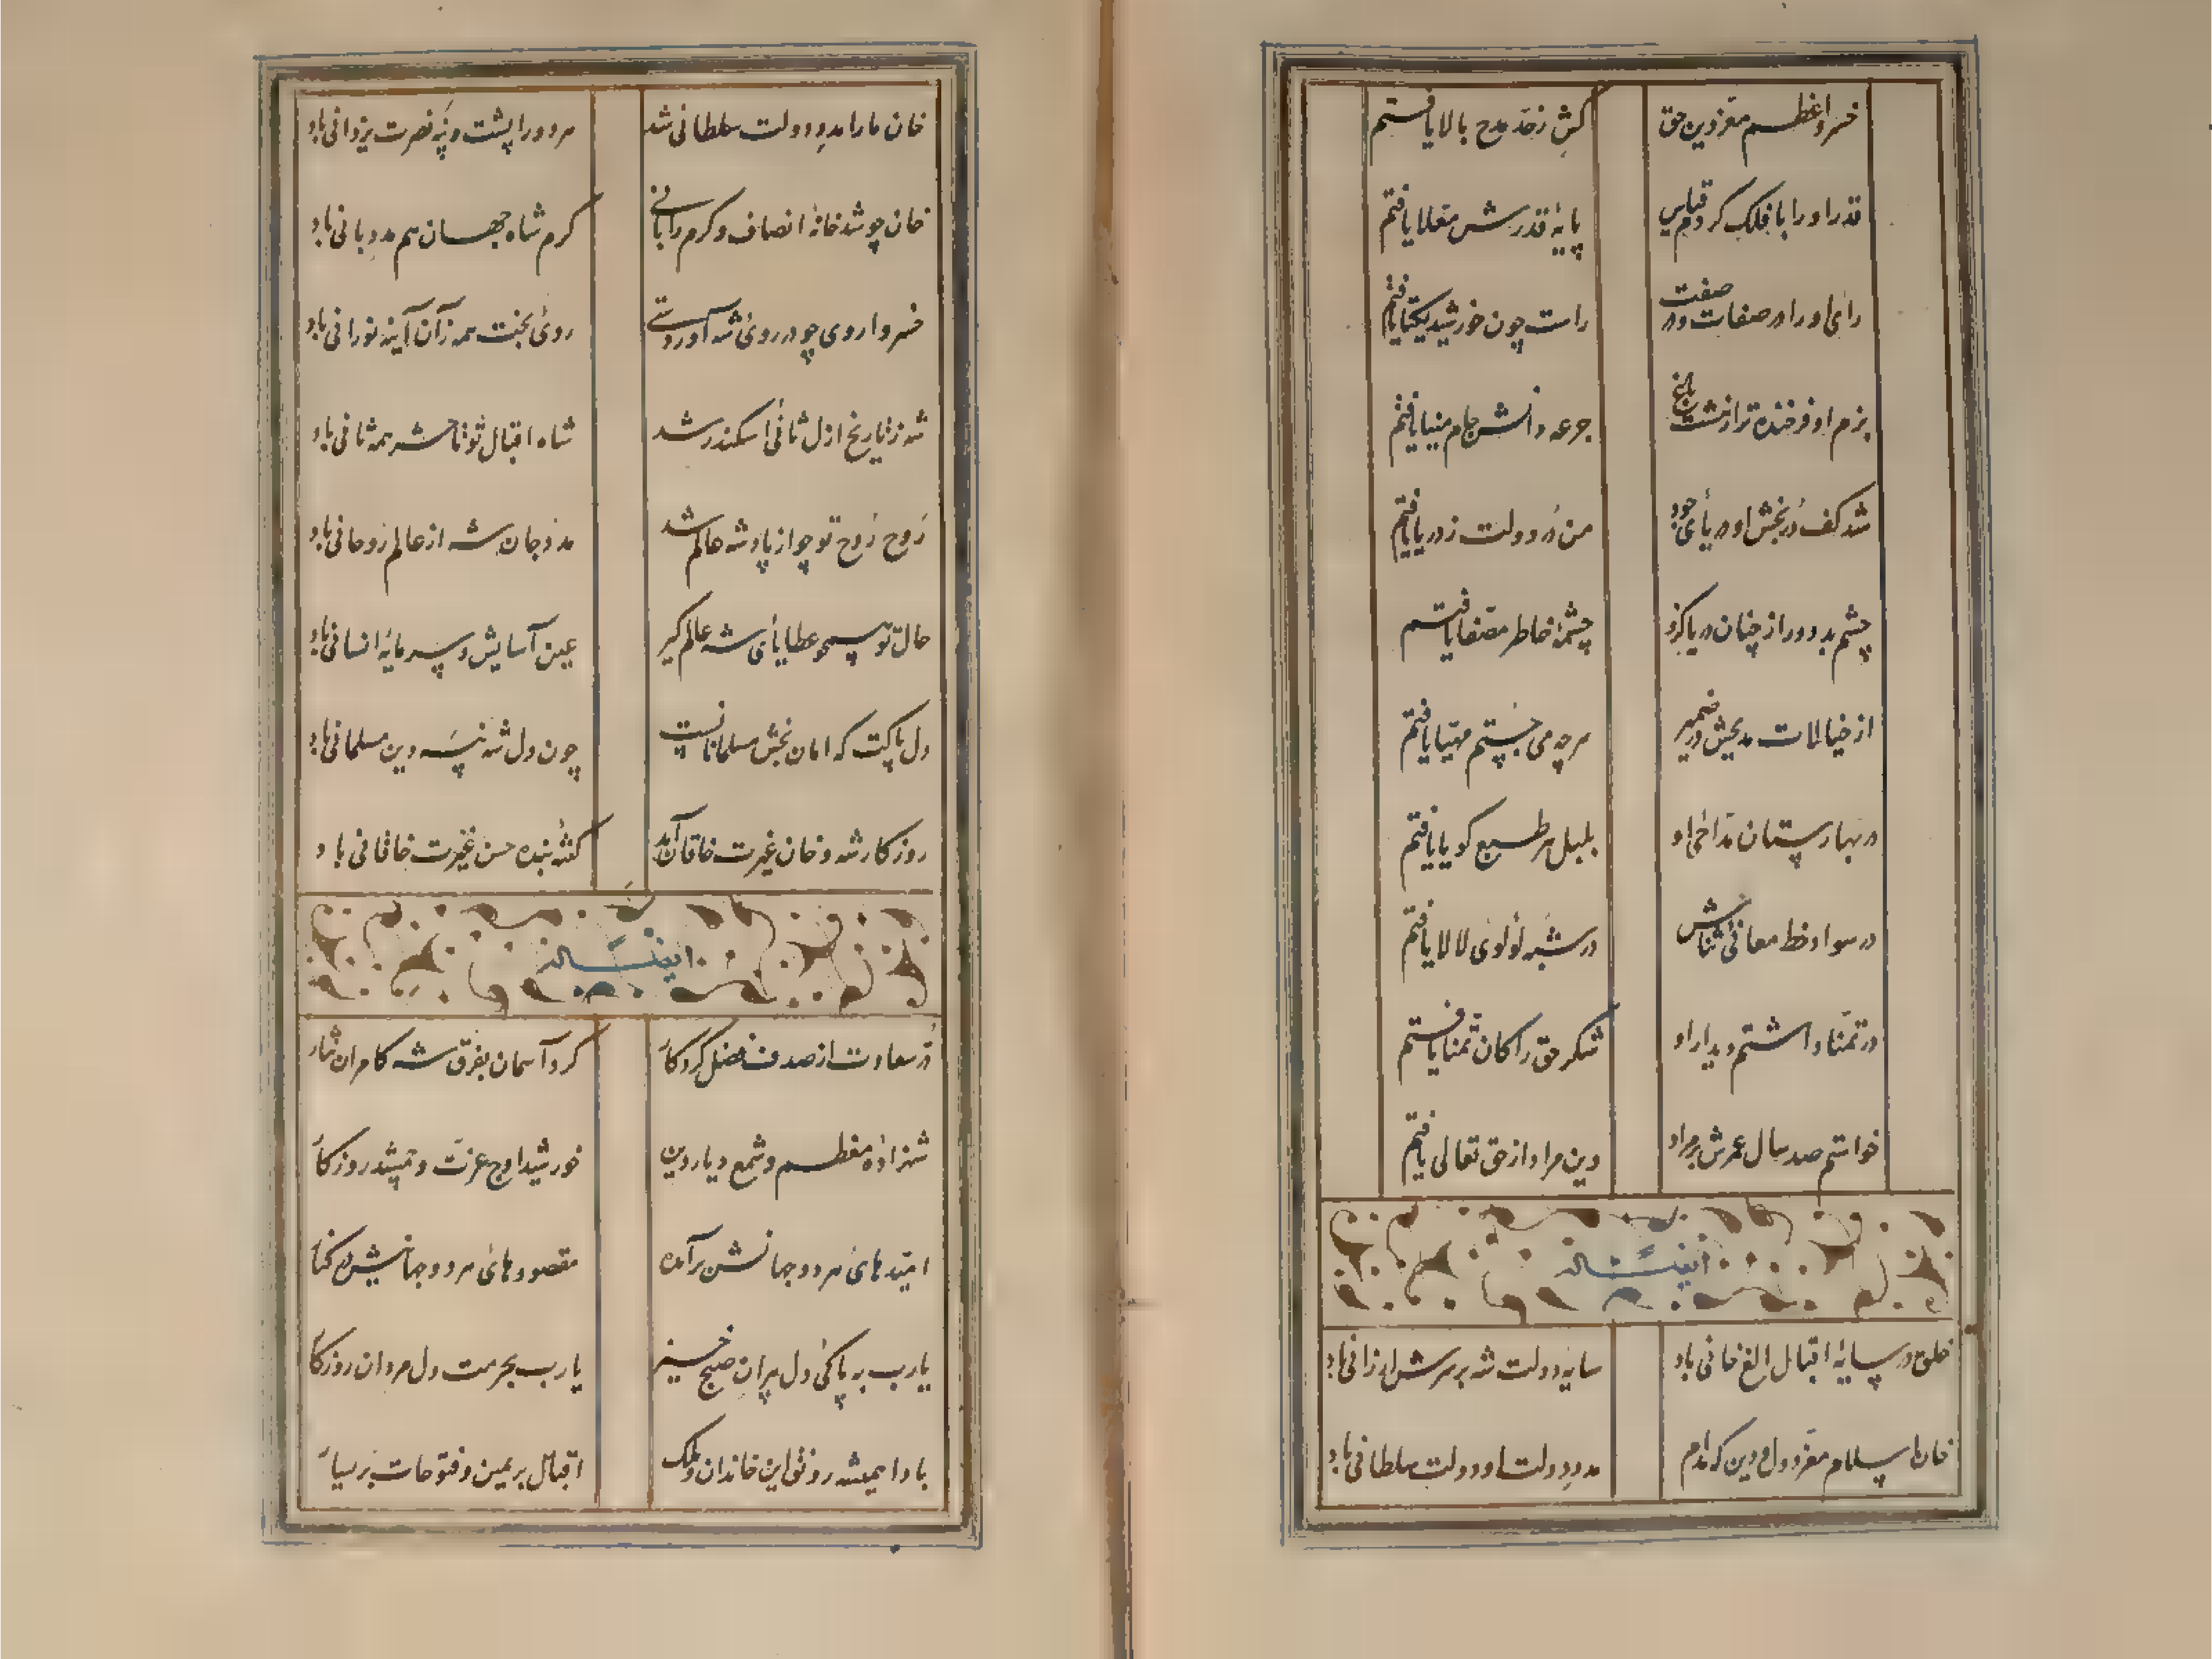 خسرو اعظم معز دین حق
کش ز حد مدح بالا یافتم
قدر او را با فلک کردم قیاس
پایهٔ قدرش معلا یافتم
رای او را در صفات و در صفت
راست چون خورشید یکتا یافتم
بزم او فرخنده تر از
جرعه دانش جام مینا یافتم
شد کف دربخش او دریای جود
من در دولت ز دریا یافتم
چشم بد دور از چنان دریا کزو
چشمهٔ خاطر مصفا یافتم
از خیالات مدیحش در ضمیر
هرچه می جستم مهیا یافتم
در بهارستان مداحی او
بلبل هر طبع گویا یافتم
در سواد خط معانی ثناش
در شبه لولوی لالا یافتم
در تمنا داشتم دیدار او
شکر حق را کان تمنا یافتم
خواستم صد سال عمرش بر مراد
وین مراد از حق تعالی یافتم
ایضاً له
خلق در سایهٔ اقبال الغ خانی باد
سایه دولت شه بر سرش ارزانی باد
خان اسلام معز دول و دین که مدام
مدد دولت او دولت سلطانی باد
خان ما را مدد دولت سلطانی شد
مر ورا پشت و پنه نصرت یزدانی باد
خان چو شد خانهٔ انصاف و کرم را بانی
کرم شاه جهان هم مدد بانی باد
خسروا روی چو در روی شه آوردستی
روی بخت همه زان آینه نورانی باد
شه ز تاریخ ازل ثانی اسکندر شد
شاه اقبال تو تا حشر همه ثانی باد
روح روح تو چو از پادشه عالم شد
مدد جان شه از عالم روحانی باد
حال تو همچو عطایای شه عالم گیر
عین آسایش و سرمایهٔ انسانی باد
دل پاکت که امان بخش مسلمانانست
چون دل شه سپه دین مسلمانی باد
روزگار شه و خان غیرت خاقان آمد
گفته بنده حسن غیرت خاقانی باد
ایضاً له
در سعادت از صدف فضل کردگار
کرد آسمان بفرق شه کامران نثار
شهزاده معظم و شمع دیار دین
خورشید اوج عزت و جمشید روزگار
امیدهای هر دو جهانش برآمده
مقصودهای هر دو جهانیش در کنار
یارب به پاکی دل پیران صبح خیز
یارب بحرمت دل مردان روزگار
بادا همیشه رونق این خاندان و ملک
اقبال بر یمین و فتوحات بر یسار